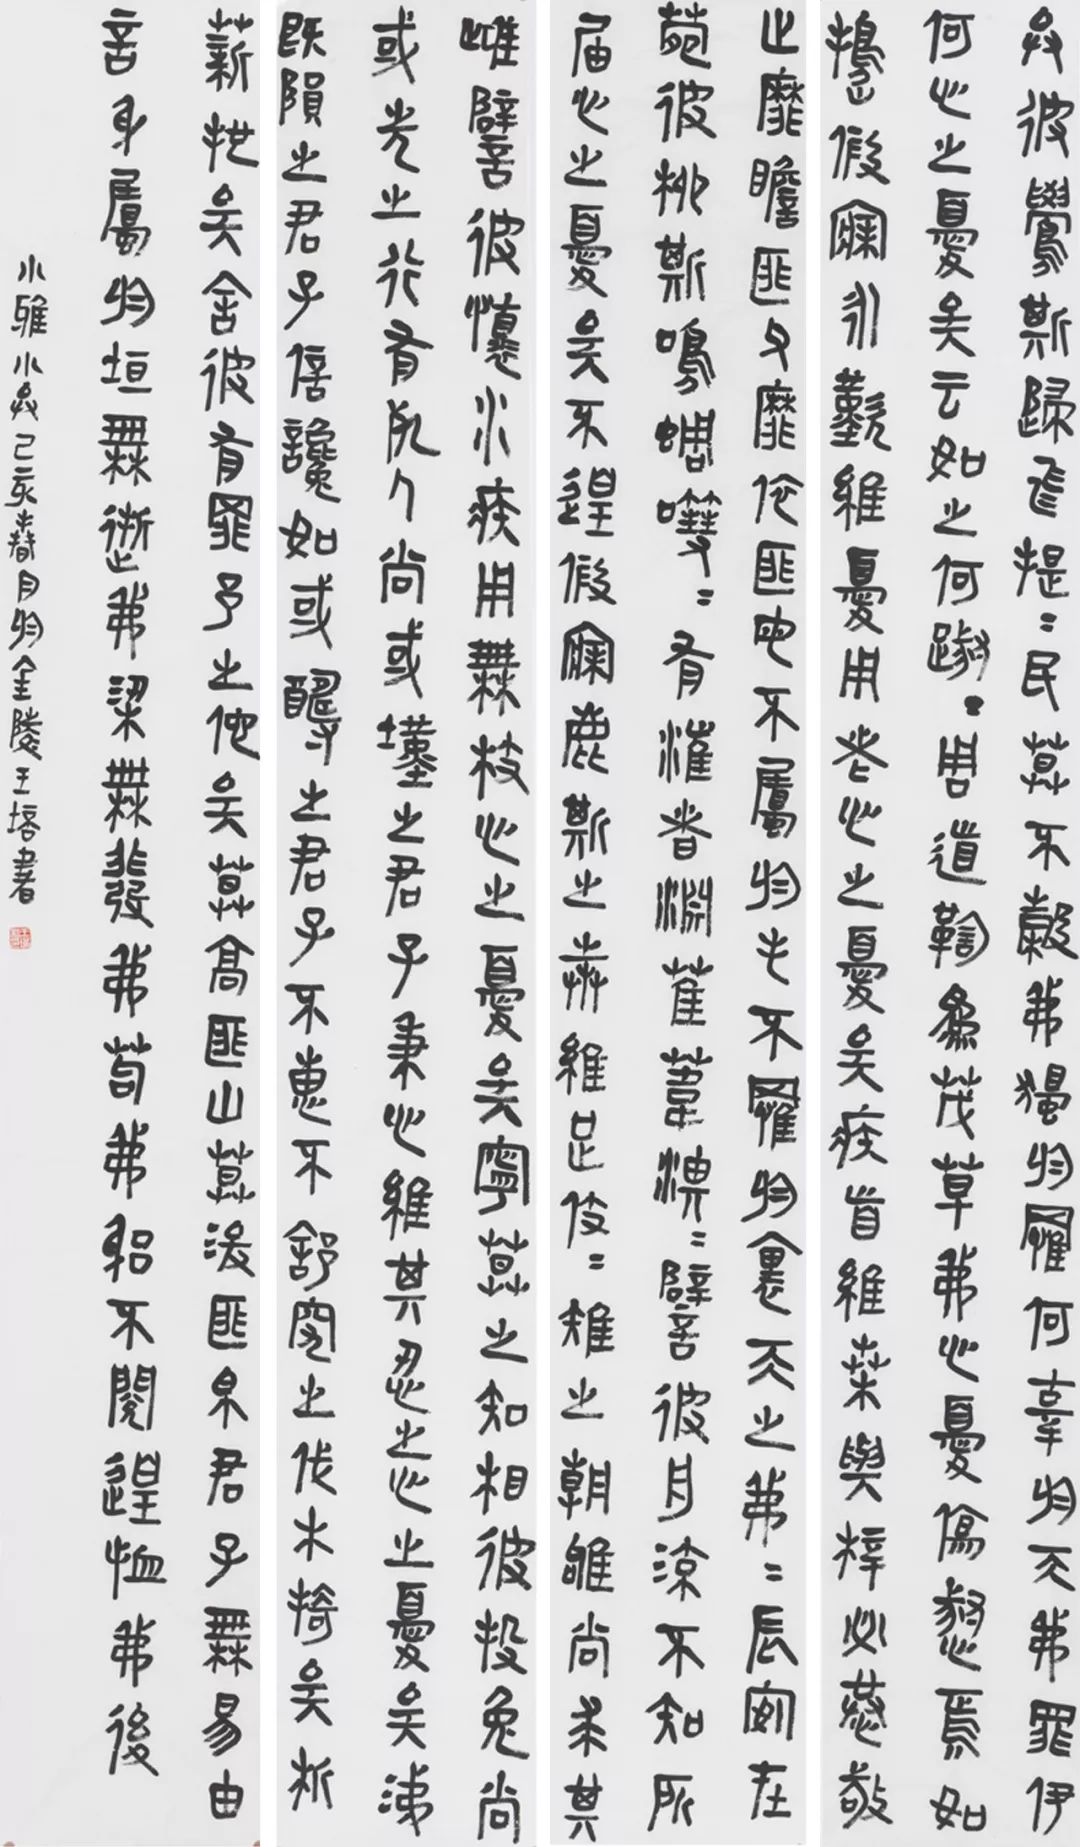 弁彼鸒斯歸飛提〻民莫不穀我獨于罹何辜于天我罪伊
何心之憂矣云如之何踧〻周道鞫為茂草我心憂傷惄焉如
擣假寐永歎維憂用老心之憂矣疾首維桑與梓必恭敬
止靡瞻匪父靡依匪母不屬于毛不罹于裏天之我〻辰安在
菀彼柳斯鳴蜩嘒〻有漼者淵萑葦淠〻譬彼舟流不知所
屆心之憂矣不遑假寐鹿斯之奔維足伎〻雉之朝雊尚求其
雌譬彼壞木疾用無枝心之憂矣寧莫之知相彼投兔尚
或先之行有死人尚或墐之君子秉心維其忍之心之憂矣涕
既隕之君子信讒如或醻之君子不惠不舒究之伐木掎矣析
薪扡矣舍彼有罪予之佗矣莫高匪山莫浚匪泉君子無易由
言耳屬于垣無逝我梁無發我笱我躬不閱遑恤我後
小雅小弁己亥春月于金陵王培書